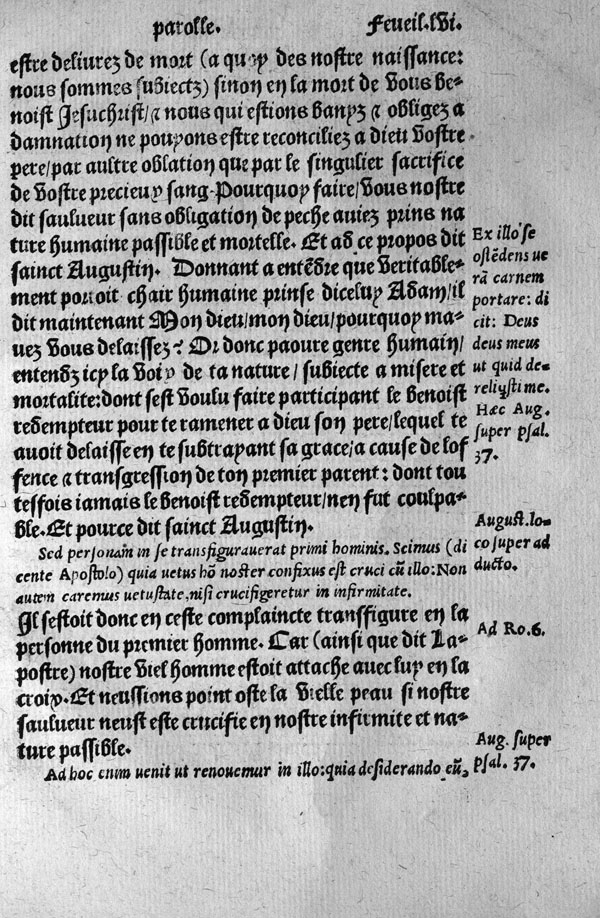 parolle. Feueil.lvi.
estre deliurez de mort (a quoy des nostre naissance:
nous sommes subiectz) sinon en la mort de vous be-
noist Jesuchrist/⁊ nous qui estions banyz ⁊ obligez a
damnation ne pouyons estre reconciliez a dieu vostre
pere/par aultre oblation que par le singulier sacrifice
de vostre precieux sang. Pourquoy faire/vous nostre
dit saulueur sans obligation de peche auiez prins na
ture humaine passible et mortelle. Et ad ce propos dit
sainct Augustin. Donnant a entẽdre que veritable-
ment portoit chair humaine prinse diceluy Adam/il
dit maintenant Mon dieu/mon dieu/pourquoy ma-
uez vous delaissez? Or donc paoure genre humain/
entendz icy la voix de ta nature/subiecte a misere et
mortalite:dont sest voulu faire participant le benoist
redempteur pour te ramener a dieu son pere/lequel te
auoit delaisse en te subtrayant sa grace/a cause de lof
fence ⁊ transgression de ton premier parent: dont tou
tesfois iamais le benoist redempteur/nen fut coulpa-
ble. Et pource dit sainct Augustin.
Sed personam in se transfigurauerat primi hominis. Scimus (di
cente Apostolo) quia uetus hõ noster confixus est cruci cũ illo: Non
autem caremus uetustate, nisi crucifigeretur in infirmitate.
Il sestoit donc en ceste complaincte transfigure en la
personne du premier homme. Car (ainsi que dit La-
postre) nostre viel homme estoit attache auec luy en la
croix. Et neussions point oste la vielle peau si nostre
saulueur neust este crucifie en nostre infirmite et na-
ture passible.
Ad hoc enim uenit ut renouemur in illo: quia desiderando eũ,
Ex illo se
ostẽdens ue
rã carnem
portare: di
cit: Deus
deus meus
ut quid de-
reliqsti me.
Hæc Aug.
super psal.
37.
August. lo-
co super ad
ducto.
Ad Ro. 6.
Aug. super
psal. 37.